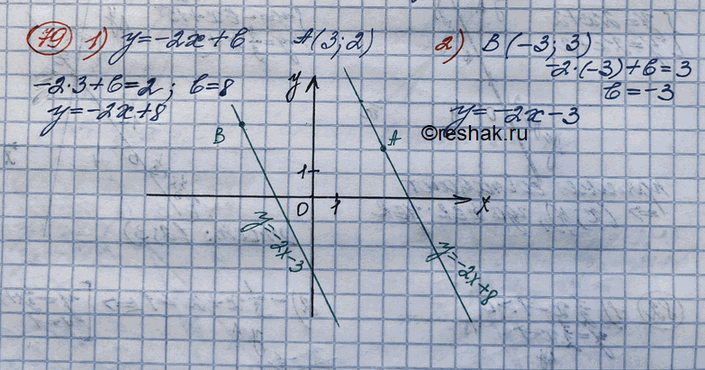 79 1) y=-2x+b A(3; 2) 2) B(-3; 3)
-2·3+b=2; b=8 -2·(-3)+b=3
y=-2x+8 b=-3
y=-2x-3
©reshak.ru
y
B
A
1
0 1 x
y=-2x-3
y=-2x+8